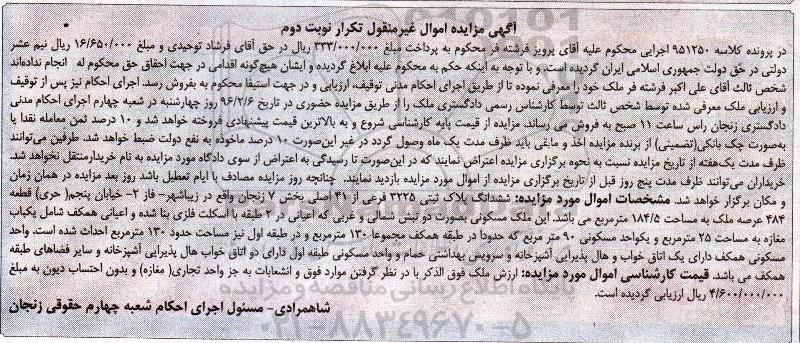 آگهی مزایده اموال غیرمنقول تکرار نوبت دوم
در پرونده کلاسه ۹۵۱۲۵۰ اجرایی محکوم علیه آقای پرویز فرشته فر محکوم به پرداخت مبلغ ۳۳۳/۰۰۰/۰۰۰ ریال در حق آقای فرشاد توحیدی و مبلغ ۱۶/۶۵۰/۰۰۰ ریال نیم عشر
دولتی در حق دولت جمهوری اسلامی ایران گردیده است. و با توجه به اینکه حکم به محکوم علیه ابلاغ گردیده و ایشان هیچ‌گونه اقدامی در جهت احقاق حق محکوم له انجام نداده‌اند
شخص ثالث آقای علی اکبر فرشته فر ملک خود را معرفی نموده تا از طریق اجرای احکام مدنی توقیف، ارزیابی و در جهت استیفا محکوم به بفروش رسد. اجرای احکام نیز پس از توقیف
و ارزیابی ملک معرفی شده توسط شخص ثالث توسط کارشناس رسمی دادگستری ملک را از طریق مزایده حضوری در تاریخ ۹۶/۲/۶ روز چهارشنبه در شعبه چهارم اجرای احکام مدنی
دادگستری زنجان راس ساعت ۱۱ صبح به فروش می رساند. مزایده از قیمت پایه کارشناسی شروع و به بالاترین قیمت پیشنهادی فروخته خواهد شد و ۱۰ درصد ثمن معامله نقدا یا
به‌صورت چک بانکی(تضمینی) از برنده مزایده اخذ و مابقی باید ظرف مدت یک ماه وصول گردد در غیر این‌صورت ۱۰ درصد ماخوذه به نفع دولت ضبط خواهد شد. طرفین می‌توانند
ظرف مدت یک‌هفته از تاریخ مزایده نسبت به نحوه برگزاری مزایده اعتراض نمایند که در این‌صورت تا رسیدگی به اعتراض از سوی دادگاه مورد مزایده به نام خریدارمنتقل نخواهد شد.
خریداران می‌توانند ظرف مدت پنج روز قبل از تاریخ برگزاری مزایده از اموال مورد مزایده بازدید نمایند. چنانچه روز مزایده مصادف با ایام تعطیل باشد روز بعد مزایده در همان زمان
و مکان برگزار خواهد شد. مشخصات اموال مورد مزایده: ششدانگ پلاک ثبتی ۳۲۲۵ فرعی از ۴۱ اصلی بخش ۷ زنجان واقع در زیباشهر- فاز ۲- خیابان پنجم( حری) قطعه
۴۸۴ عرصه ملک به مساحت ۱۸۴/۵ مترمربع می باشد. این ملک مسکونی بصورت دو نبش شمالی و غربی که اعیانی در ۲ طبقه با اسکلت فلزی بنا شده و اعیانی همکف شامل یکباب
مغازه به مساحت ۲۵ مترمربع و یکواحد مسکونی ۹۰ متر مربع که حدودا در طبقه همکف مجموعا ۱۳۰ مترمربع و در طبقه اول نیز مساحت حدود ۱۳۰ مترمربع احداث شده است. واحد
مسکونی همکف دارای یک اتاق خواب و هال پذیرایی آشپزخانه و سرویس بهداشتی حمام و واحد مسکونی طبقه اول دارای دو اتاق خواب هال پذیرایی آشپزخانه و سایر فضاهای طبقه
همکف می باشد. قیمت کارشناسی اموال مورد مزایده: ارزش ملک فوق الذکر با در نظر گرفتن موارد فوق و انشعابات به جز واحد تجاری( مغازه) و بدون احتساب دیون به مبلغ
۴/۶۰۰/۰۰۰/۰۰۰ ریال ارزیابی گردیده است.
شاهمرادی- مسئول اجرای احکام شعبه چهارم حقوقی زنجان
پایگاه اطلاع رسانی مناقصه و مزایده
۰۲۱-۸۸۳۴۹۶۷۰-۵